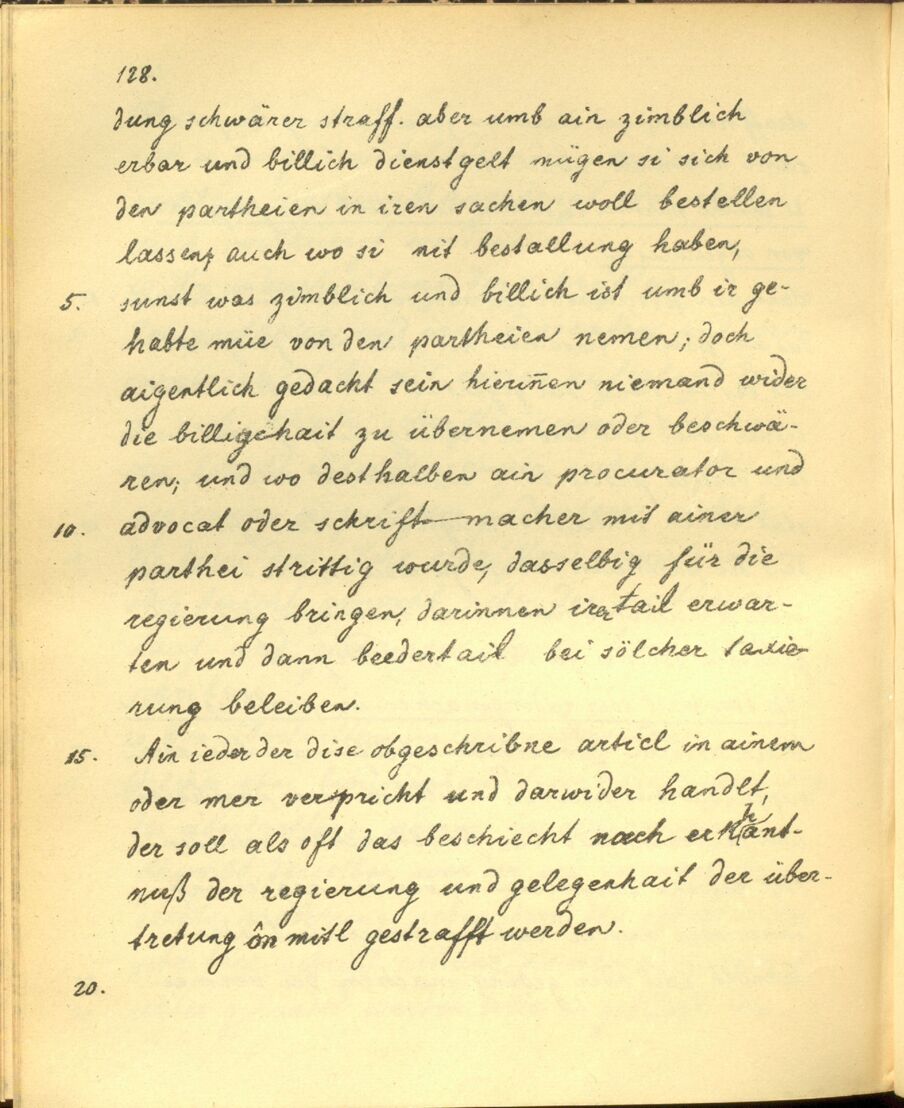 128.
dung schwärer straff. aber umb ain zimblich
erbar und billich dienstgelt mügen si sich von
den partheien in iren sachen woll bestellen
lassen, auch wo si nit bestallung haben,
5. sunst was zimblich und billich ist umb ir ge-
habte müe von den partheien nemen; doch
aigentlich gedacht sein hierin̄en niemand wider
die billigehait zu übernemen oder beschwä-
ren; und wo desthalben ain procurator und
10. advocat oder schrift-macher mit ainer
parthei strittig wurde, dasselbig für die
regierung bringen, darinnen irer tail erwar-
ten und dann beedertail bei sölcher taxie-
rung beleiben.
15. Ain ieder der dise obgeschribne articl in ainem
oder mer verspricht und darwider handlt,
der soll als oft das beschiecht nach erkhant-
nuß der regierung und gelegenhait der über-
tretung ôn mitl gestrafft werden.
20.